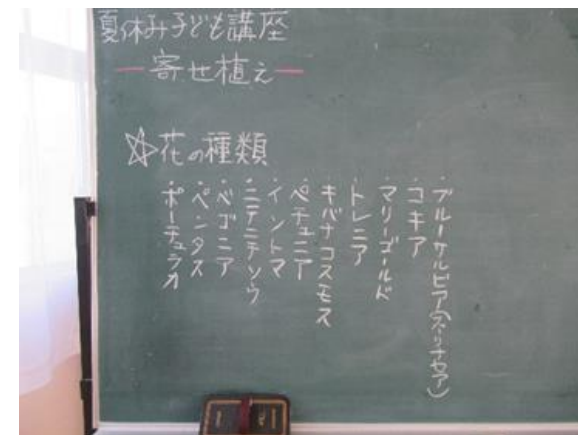 夏休み子ども講座
―寄せ植え―
☆花の種類
・ブルーサルビア(ファリナセア)
・コキア
・マリーゴールド
・トレニア
・キバナコスモス
・ペチュニア
・イソトマ
・ニチニチソウ
・ベゴニア
・ペンタス
・ポーチュラカ